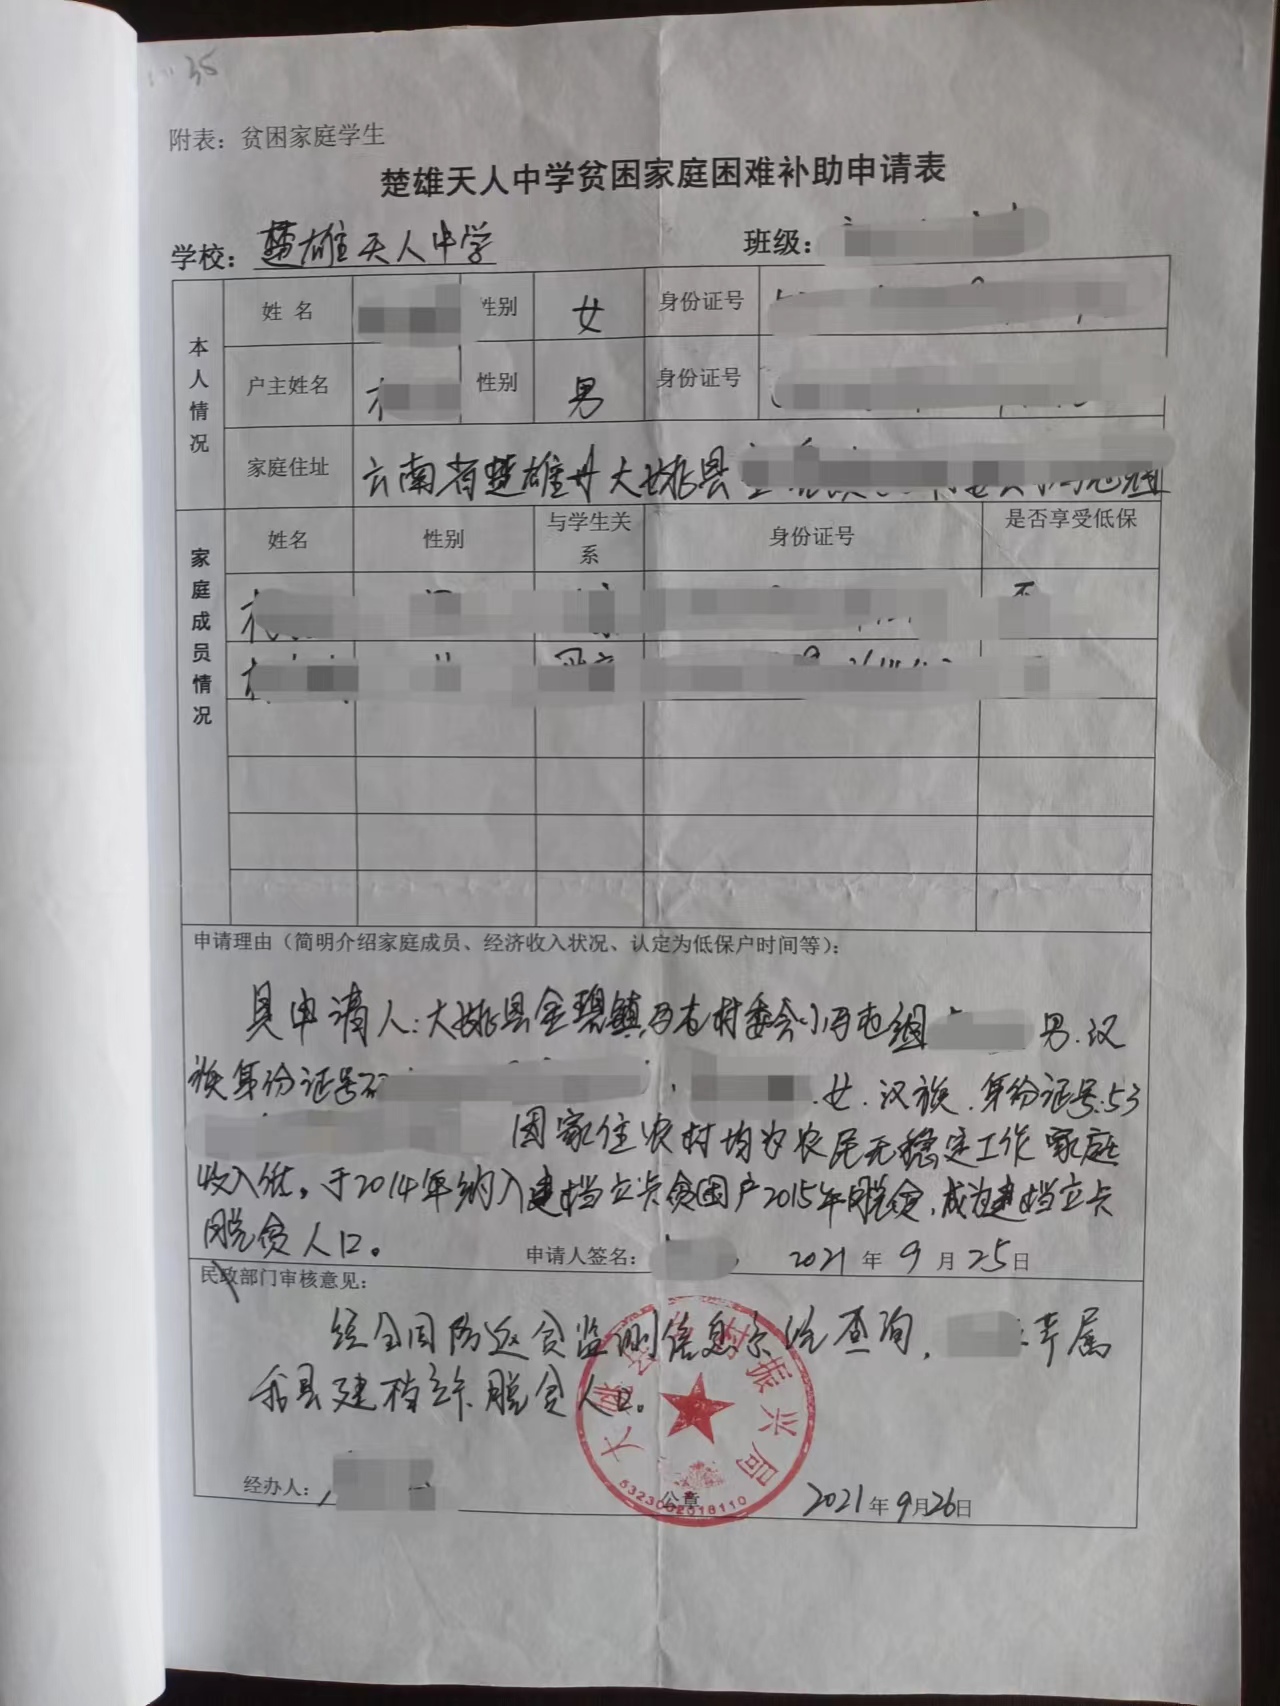 35
附表：贫困家庭学生
楚雄天人中学贫困家庭困难补助申请表
学校：楚雄天人中学 班级：
本人情况
姓名 性别 女 身份证号
户主姓名 性别 男 身份证号
家庭住址 云南省楚雄州大姚县
家庭成员情况
姓名 性别 与学生关系 身份证号 是否享受低保
否
申请理由（简明介绍家庭成员、经济收入状况、认定为低保户时间等）：
具申请人：大姚县金碧镇 村委会小 屯组 男.汉
族身份证号 女.汉族.身份证号:53
因家住农村均为农民无稳定工作家庭
收入低。于2014年纳入建档立卡贫困户2015年脱贫，成为建档立卡
脱贫人口。
申请人签名： 2021年9月25日
民政部门审核意见：
经全国防返贫监测信息系统查询， 等属
我县建档立卡脱贫人口。
大姚县乡村振兴局
5323002018110
经办人： 公章 2021年9月26日